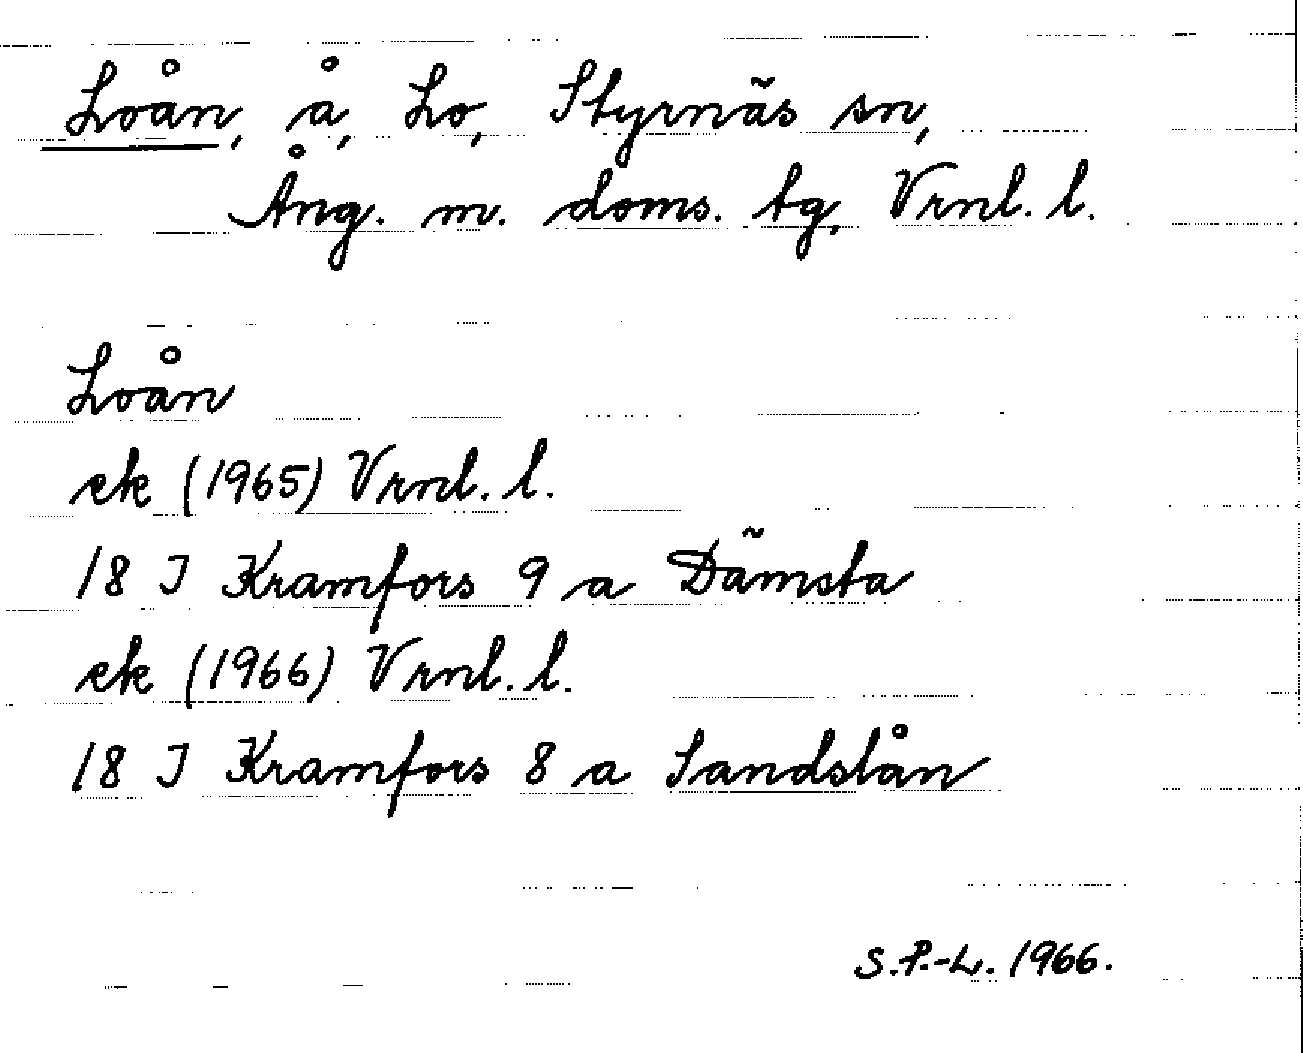 Loån, å, Lo, Styrnäs sn,
Ång. m. doms. tg, Vrnl. l.
Loån
ek (1965) Vrnl. l.
18 J Kramfors 9 a Dämsta
ek (1966) Vrnl. l.
18 J Kramfors 8 a Sandslån
S.P.-L. 1966.